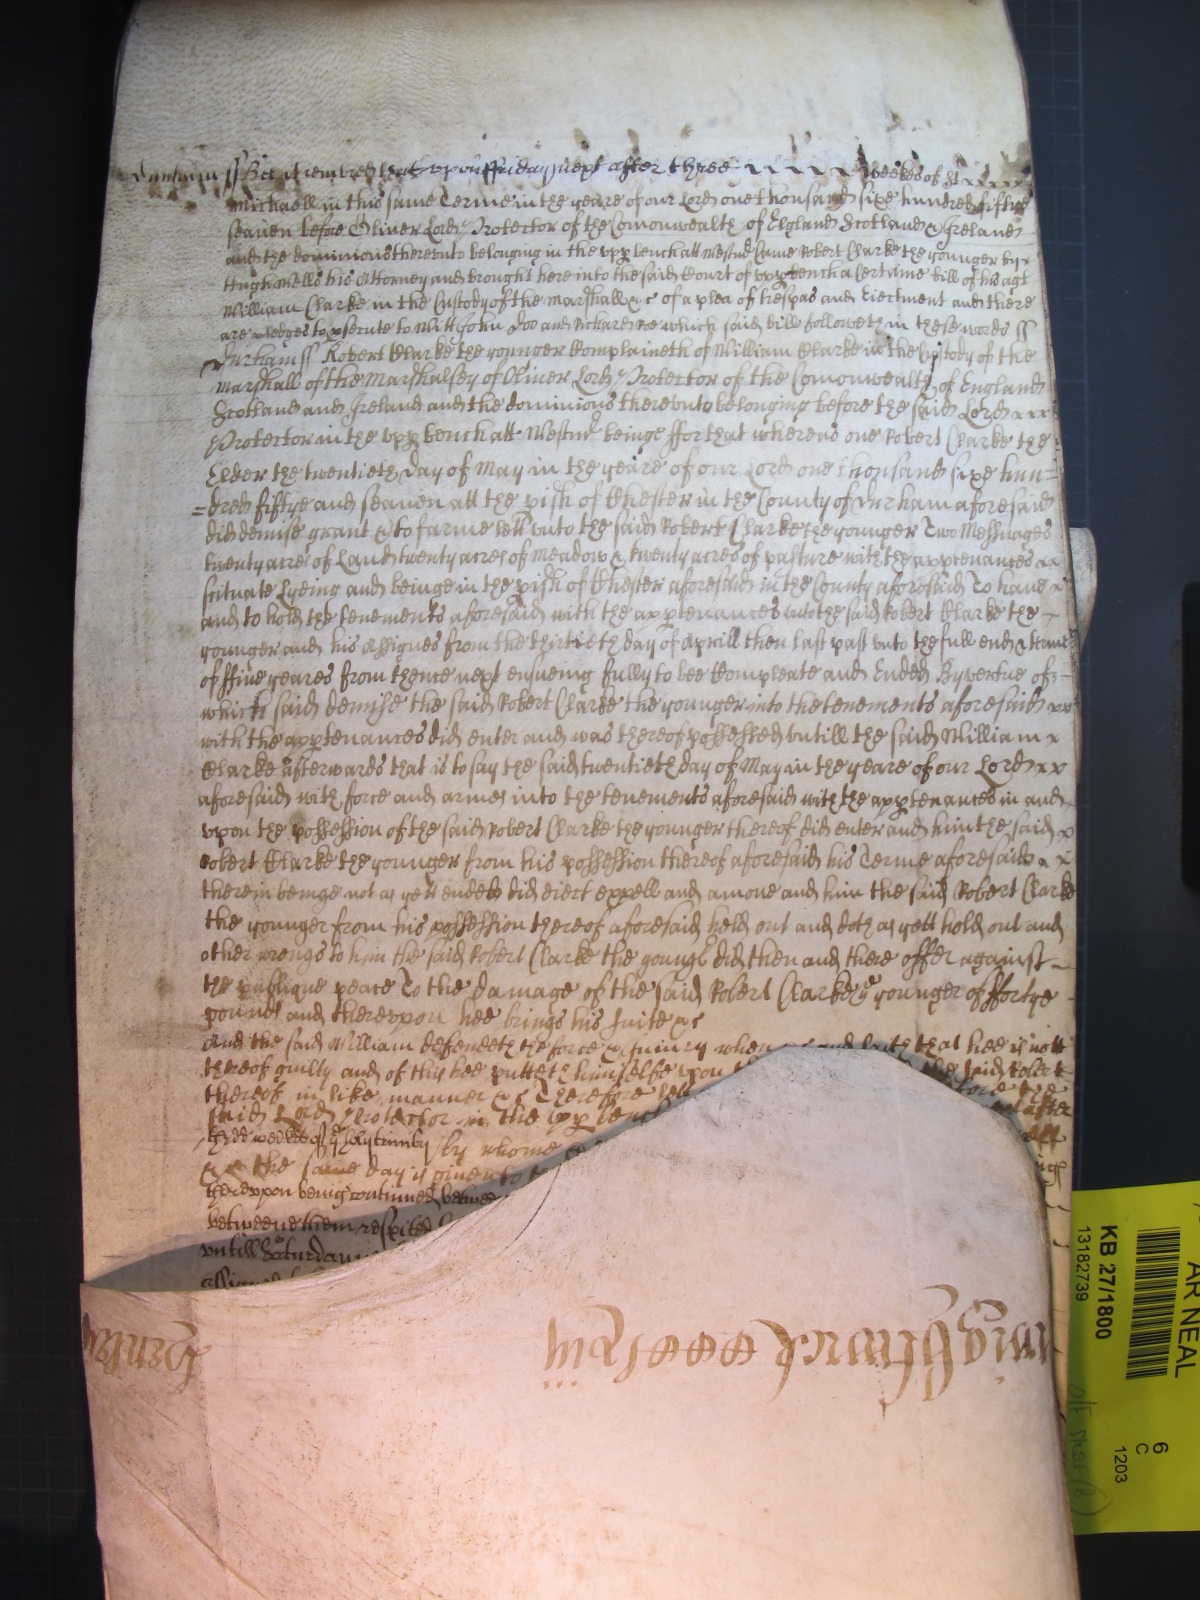 Durham ss Bee it remembred that upon ffriday next after three weekes of St
Michaell in this same Terme in the yeare of our Lord one thousand sixe hundred fiftye
seauen before Oliver Lord Protector of the Comonwealth of England Scotland & Ireland
and the dominions thereunto belonging in the upp bench att Westmr Came Robert Clarke the younger by
Hugh Wells his Attorney and brought here into the said Court of upp bench a Certaine bill of his agt
William Clarke in the Custody of the Marshall &c of a plea of trespas and Eiectment and there
are pledges to psecute to witt John Doo and Richard Roe which said bill followeth in these words ss
Durham ss Robert Clarke the younger Complaineth of William Clarke in the Custody of the
Marshall of the Marshalsey of Oliver Lord Protector of the Comonwealth of England
Scotland and Ireland and the dominions thereunto belonging before the said Lord
Protector in the upp bench att Westmr beinge ffor that whereas one Robert Clarke the
Elder the twentieth day of May in the yeare of our Lord one thousand sixe hun=
=dred fiftye and seauen att the pish of Chester in the County of Durham aforesaid
did demise grant & to farme lett unto the said Robert Clarke the younger Two Messuages
twenty acres of Land twenty acres of meadow & twenty acres of pasture with the apptenances
scituate Lyeing and beinge in the pish of Chester aforesaid in the County aforesaid To have
and to hold the tenements aforesaid with the apptenances unto the said Robert Clarke the
younger and his Assignes from the thirtieth day of Aprill then last past unto the full end & terme
of ffiue yeares from thence next ensueing fully to bee Compleate and Ended By vertue of
which said demise the said Robert Clarke the younger into the tenements aforesaid
with the apptenances did enter and was thereof possessed untill the said William
Clarke afterwards that is to say the said twentieth day of May in the yeare of our Lord
aforesaid with force and armes into the tenements aforesaid with the apptenances in and
upon the possession of the said Robert Clarke the younger thereof did enter and him the said
Robert Clarke the younger from his possession thereof aforesaid his Terme aforesaid
therein beinge not as yett ended did eiect expell and amove and him the said Robert Clarke
the younger from his possession thereof aforesaid held out and doth as yett hold out and
other wrongs to him the said Robert Clarke the youngr did then and there offer against
the publique peace To the damage of the said Robert Clarke ye younger of ffortye
pounds and thereupon hee brings his suite &c
And the said William defendeth the force & iniury when &c and saith that hee is nott
thereof guilty and of this hee putteth himselfe upon the said Robert
thereof in like manner &c Therefore lett before the
said Lord Protector in the upp bench after
three weekes of ye holy trinity by whome
&c the same day is given to
thereupon being continued betweene
betweene them respited
untill Saturday
KB 27/1800
13182739
AR NEAL
6
C
1203